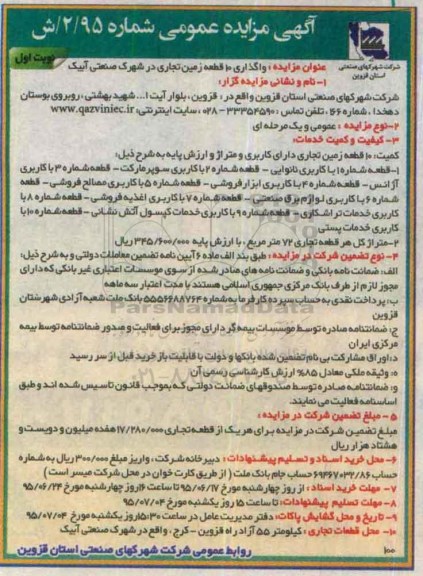 آگهی مزایده عمومی شماره ۲/۹۵/ش
نوبت اول
شرکت شهرکهای صنعتی
استان قزوین
عنوان مزایده : واگذاری ۱۰ قطعه زمین تجاری در شهرک صنعتی آبیک
۱-نام و نشانی مزایده گزار:
شرکت شهرکهای صنعتی استان قزوین واقع در : قزوین ، بلوار آیت ا... شهید بهشتی ، روبروی بوستان
دهخدا ، شماره ۱۶۶ ، تلفن تماس : ۳۳۳۵۴۵۹۰-۰۲۸ ، سایت اینترنتی: www.qazviniec.ir
۲-نوع مزایده : عمومی و یک مرحله ای
۳- کیفیت و کمیت خدمات:
کمیت: ۱۰ قطعه زمین تجاری دارای کاربری و متراژ و ارزش پایه به شرح ذیل:
۱-قطعه شماره ۱ با کاربری نانوایی - قطعه شماره ۲ با کاربری سوپر مارکت - قطعه شماره ۳ با کاربری
آژانس - قطعه شماره ۴ با کاربری ابزار فروشی - قطعه شماره ۵ با کاربری مصالح فروشی - قطعه
شماره ۶ با کاربری لوازم برق صنعتی - قطعه شماره ۷ با کاربری اغذیه فروشی - قطعه شماره ۸ با
کاربری خدمات تراشکاری - قطعه شماره ۹ با کاربری خدمات کپسول آتش نشانی - قطعه شماره ۱۰ با
کاربری خدمات پستی
۲-متراژ کل هر قطعه تجاری ۷۲ متر مربع ، با ارزش پایه ۳۴۵/۶۰۰/۰۰۰ ریال
۴- نوع تضمین شرکت در مزایده : طبق بند الف ماده ۶ آیین نامه تضمین معاملات دولتی و به شرح ذیل:
الف: ضمانت نامه بانکی و ضمانت نامه های صادر شده از سوی موسسات اعتباری غیر بانکی که دارای
مجوز لازم از طرف بانک مرکزی جمهوری اسلامی هستند با مدت اعتبار سه ماهه
ب: پرداخت نقدی به حساب سپرده کارفرما به شماره ۵۵۵۶۶۸۸۷۶۴ بانک ملت شعبه آزادی شهرستان
قزوین
ParsNamadData
ج: ضمانتنامه صادره توسط موسسات بیمه گر دارای مجوز برای فعالیت و صدور ضمانتنامه توسط بیمه
مرکزی ایران
د: اوراق مشارکت بی نام تضمین شده بانکها و دولت با قابلیت باز خرید قبل از سر رسید
ه: وثیقه ملکی معادل ۸۵٪ ارزش کارشناسی رسمی آن
و: ضمانتنامه صادره توسط صندوقهای ضمانت دولتی که بموجب قانون تاسیس شده اند و طبق
اساسنامه فعالیت می نمایند.
۵ - مبلغ تضمین شرکت در مزایده :
مبلغ تضمین شرکت در مزایده برای هر یک از قطعه تجاری ۱۷/۲۸۰/۰۰۰ هفده میلیون و دویست و
هشتاد هزار ریال
۶- محل خرید اسناد و تسلیم پیشنهادات : دبیرخانه شرکت ، واریز مبلغ ۳۰۰/۰۰۰ ریال به شماره
حساب ۶۹۴۶۷۰۳۲/۸۶ حساب جام بانک ملت ( از طریق کارت خوان در محل شرکت میسر است )
۷- مهلت خرید اسناد : از روز چهارشنبه مورخ ۹۵/۰۶/۱۷ تا ساعت ۱۶ روز چهارشنبه مورخ ۹۵/۰۶/۲۴
۸- مهلت تسلیم پیشنهادات : تا ساعت ۱۵ روز یکشنبه مورخ ۹۵/۰۷/۰۴
۹- تاریخ و محل گشایش پاکات: دفتر مدیریت عامل در ساعت ۱۵:۳۰ روز یکشنبه مورخ ۹۵/۰۷/۰۴
۱۰- محل قطعات تجاری : کیلومتر ۵۵ آزاد راه قزوین - کرج ، واقع در شهرک صنعتی آبیک
روابط عمومی شرکت شهرکهای صنعتی استان قزوین
۱۰۰